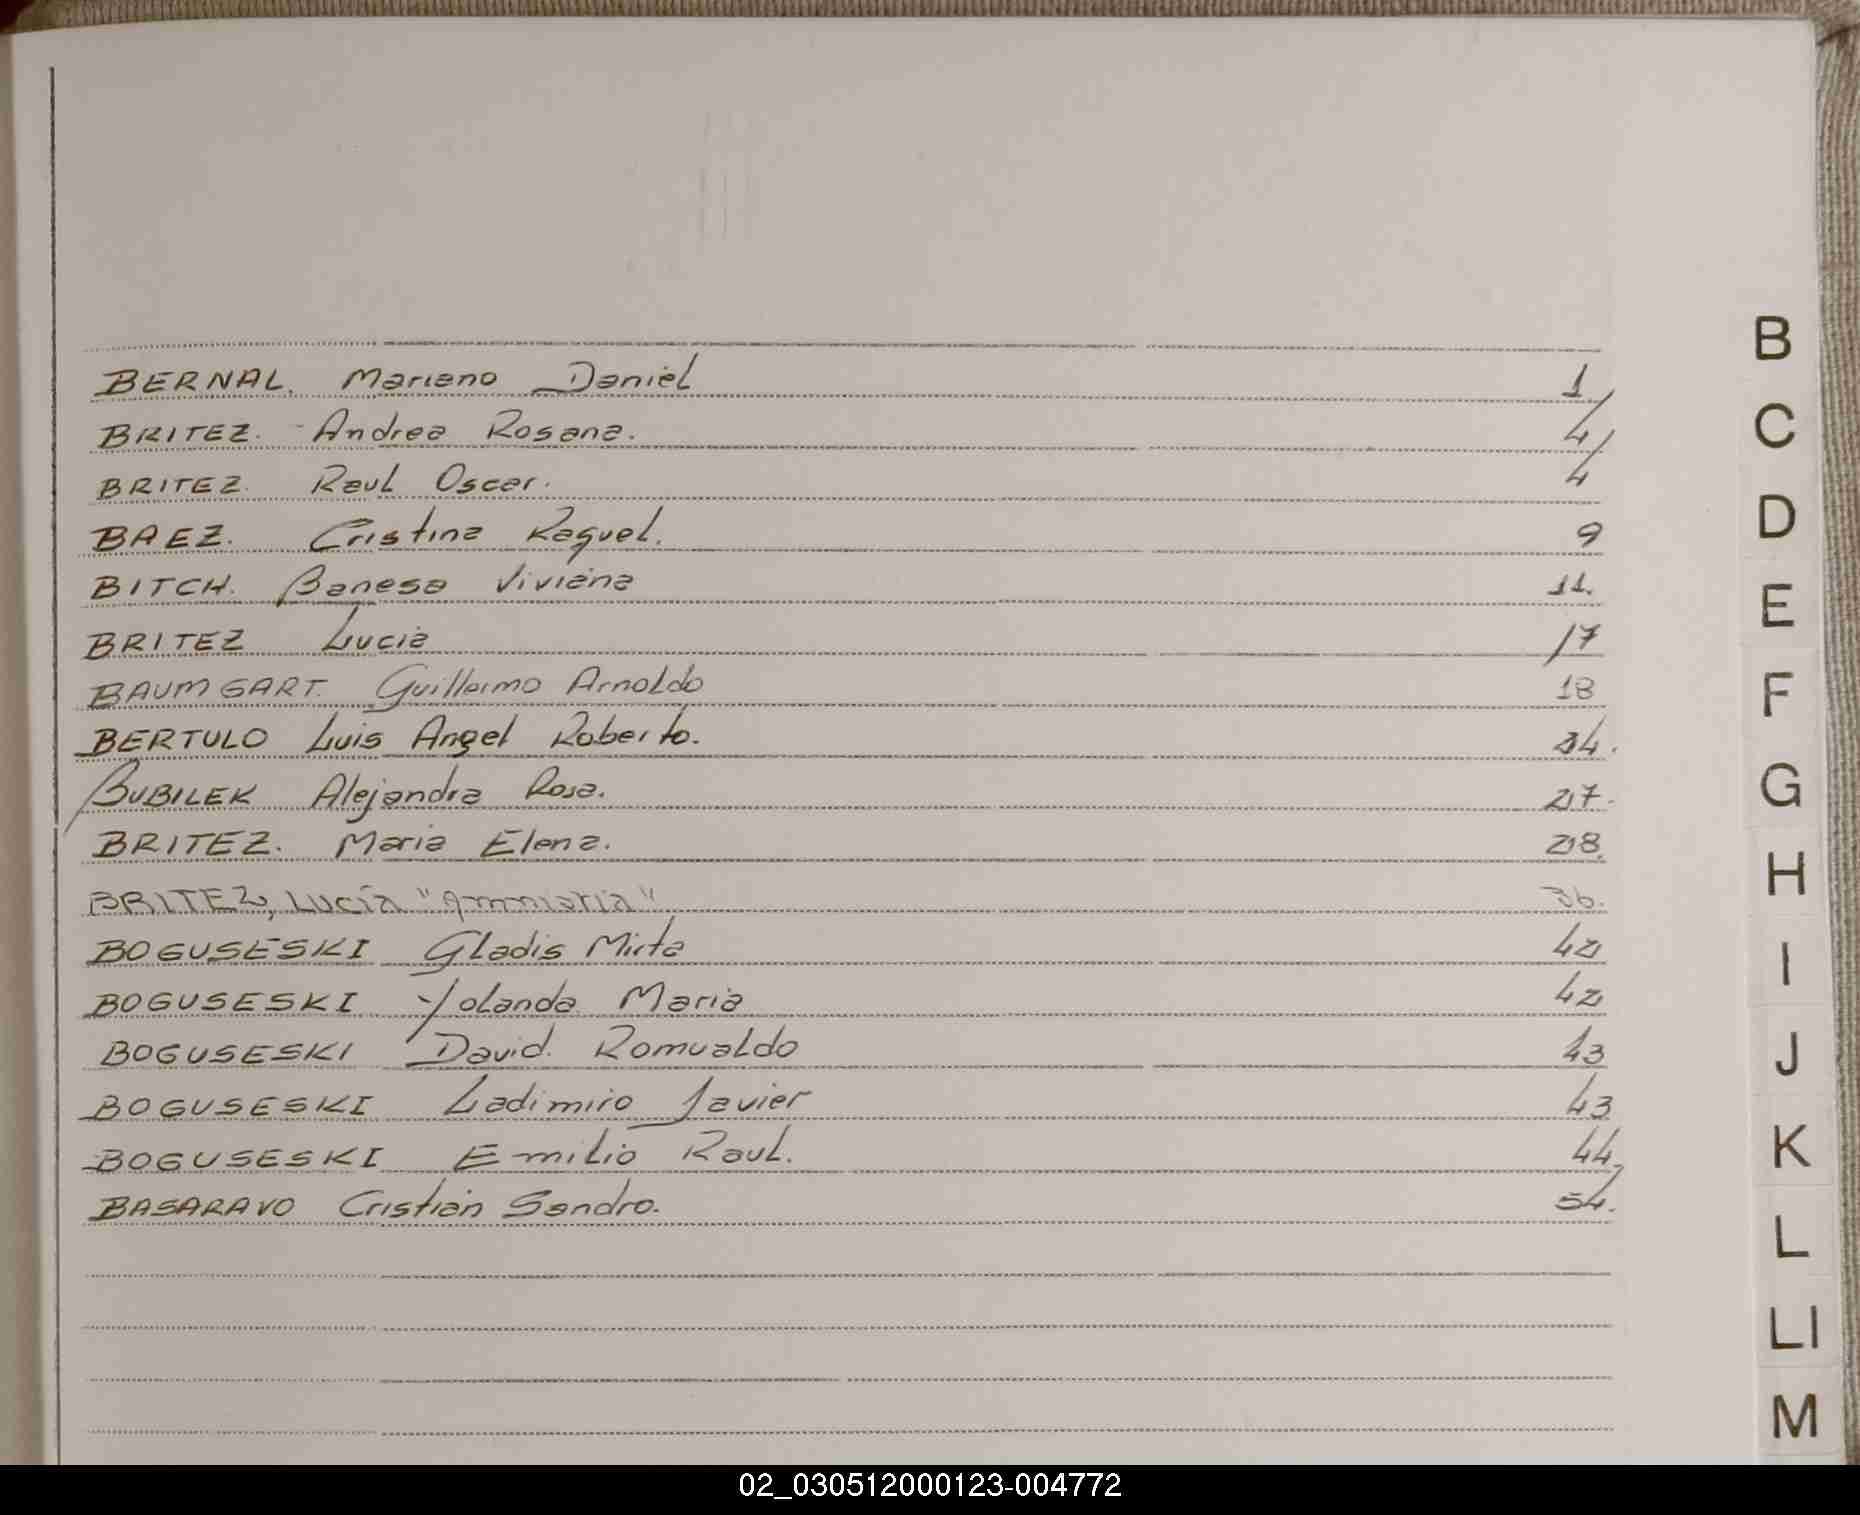 BERNAL. Mariano Daniel 1
BRITEZ. Andrea Rosana. 4
BRITEZ. Raul Oscar. 4
BAEZ. Cristina Raquel. 9
BITCH. Banesa Viviana 11.
BRITEZ Lucia 17
BAUMGART. Guillermo Arnoldo 18
BERTULO Luis Angel Roberto. 24.
BUBILEK Alejandra Rosa. 27.
BRITEZ. Maria Elena. 28.
BRITEZ, LUCÍA 36.
BOGUSESKI Gladis Mirta 42
BOGUSESKI Yolanda Maria 42
BOGUSESKI David Romualdo 43
BOGUSESKI Ladimiro Javier 43
BOGUSESKI Emilio Raul. 44
BASARAVO Cristian Sandro. 54.
B
C
D
E
F
G
H
I
J
K
L
Ll
M
02_030512000123-004772